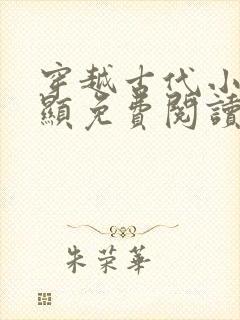 穿越古代小
顯免費閱讀
朱荣華